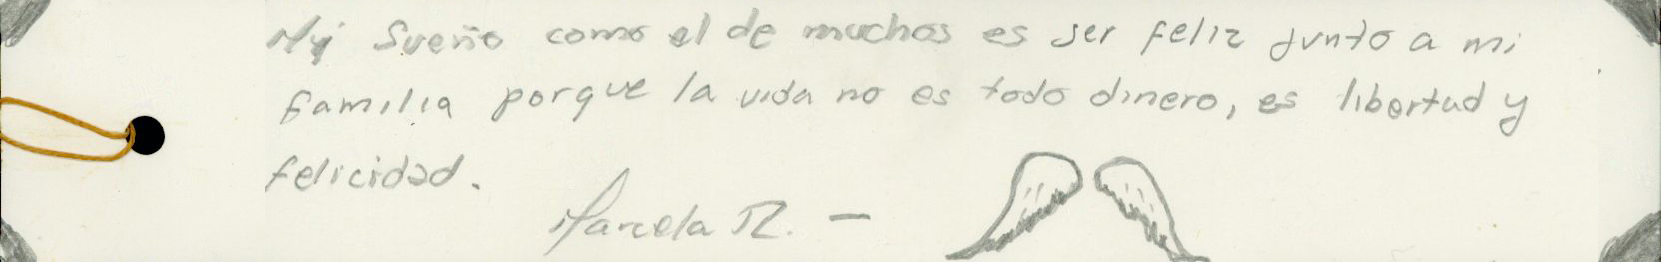 My Sueño como el de muchos es ser feliz junto a mi
familia porque la vida no es todo dinero, es libertad y
felicidad.
Marcela R. —